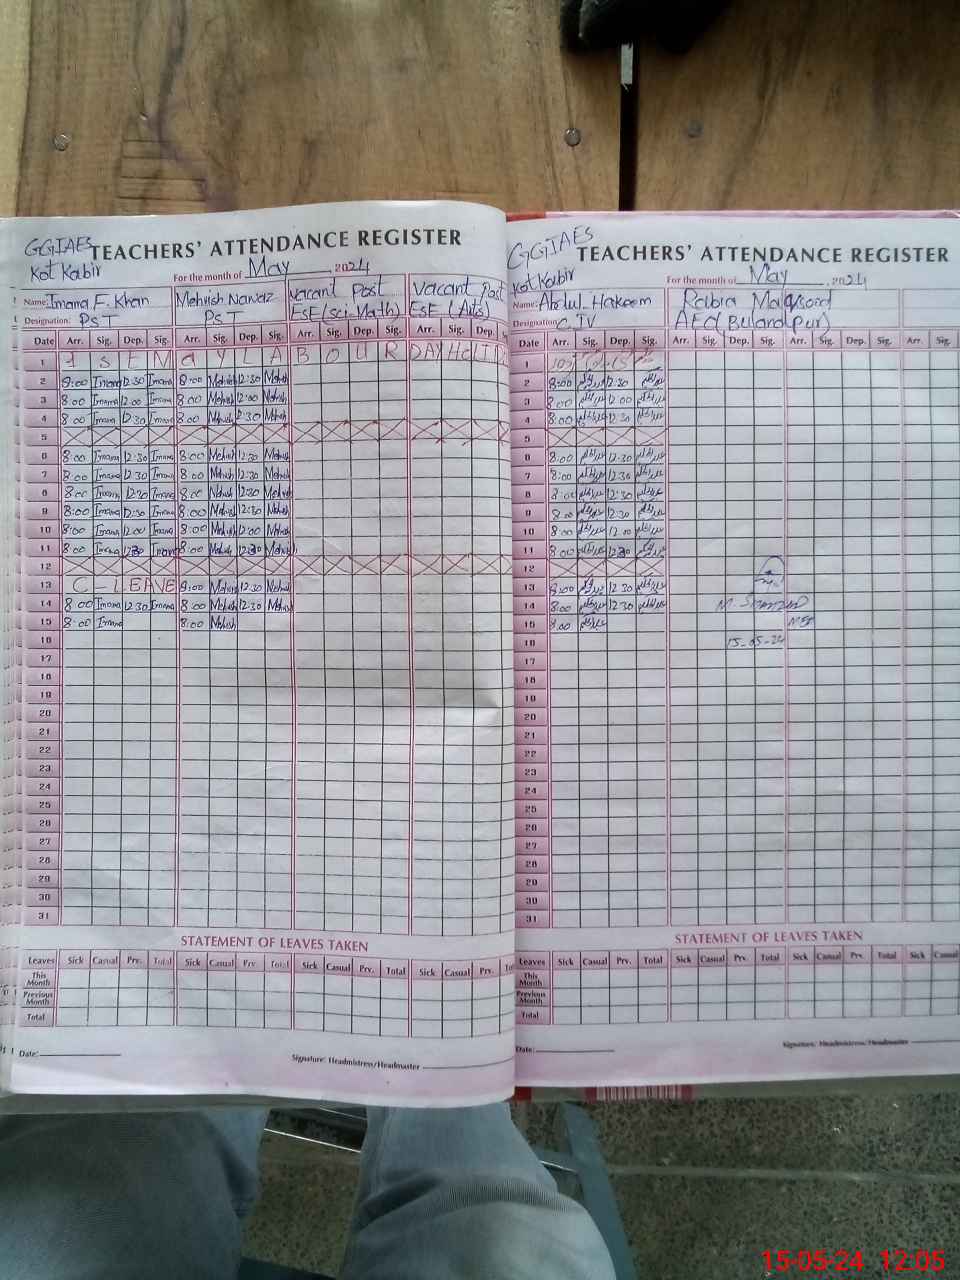 GGIAES
TEACHERS' ATTENDANCE REGISTER
Kot Kabir
For the month of May, 2024
Name: Imana F. Khan Mehvish Nawaz Vacant Post Vacant Post
Designation: PST PST ESE (Sci-Math) ESE (Arts)
Date Arr. Sig. Dep. Sig. Arr. Sig. Dep. Sig. Arr. Sig. Dep. Sig. Arr. Sig. Dep.
1 1 s t M a Y L A B O U R DAY HOLID
2 8:00 Imana 12:30 Imana 8:00 Mehvish 12:30 Mehvish
3 8:00 Imana 12:00 Imana 8:00 Mehvish 12:00 Mehvish
4 8:00 Imana 12:30 Imana 8:00 Mehvish 12:30 Mehvish
5
6 8:00 Imana 12:30 Imana 8:00 Mehvish 12:30 Mehvish
7 8:00 Imana 12:30 Imana 8:00 Mehvish 12:30 Mehvish
8 8:00 Imana 12:30 Imana 8:00 Mehvish 12:30 Mehvish
9 8:00 Imana 12:30 Imana 8:00 Mehvish 12:30 Mehvish
10 8:00 Imana 12:00 Imana 8:00 Mehvish 12:00 Mehvish
11 8:00 Imana 12:30 Imana 8:00 Mehvish 12:30 Mehvish
12
13 C-LEAVE 8:00 Mehvish 12:30 Mehvish
14 8:00 Imana 12:30 Imana 8:00 Mehvish 12:30 Mehvish
15 8:00 Imana 8:00 Mehvish
16
17
18
19
20
21
22
23
24
25
26
27
28
29
30
31
STATEMENT OF LEAVES TAKEN
Leaves Sick Casual Prv. Total Sick Casual Prv. Total Sick Casual Prv. Total Sick Casual Prv.
This Month
Previous Month
Total
Date:
Signature: Headmistress/Headmaster
GGIAES
TEACHERS' ATTENDANCE REGISTER
Kot Kabir
For the month of May, 2024
Name: Abdul Hakeem Rabia Maqsood
Designation C.IV AEO (Buland Pur)
Date Arr. Sig. Dep. Sig. Arr. Sig. Dep. Sig. Arr. Sig. Dep. Sig. Arr. Sig.
1
2 8:00 12:30
3 8:00 12:00
4 8:00 12:30
5
6 8:00 12:30
7 8:00 12:30
8 8:00 12:30
9 8:00 12:30
10 8:00 12:00
11 8:00 12:30
12
13 8:00 12:30
14 8:00 12:30
15 8:00
16 15-05-24
17
18
19
20
21
22
23
24
25
26
27
28
29
30
31
STATEMENT OF LEAVES TAKEN
Leaves Sick Casual Prv. Total Sick Casual Prv. Total Sick Casual Prv. Total Sick Casual
This Month
Previous Month
Total
Date:
Signature: Headmistress/Headmaster
15-05-24 12:05